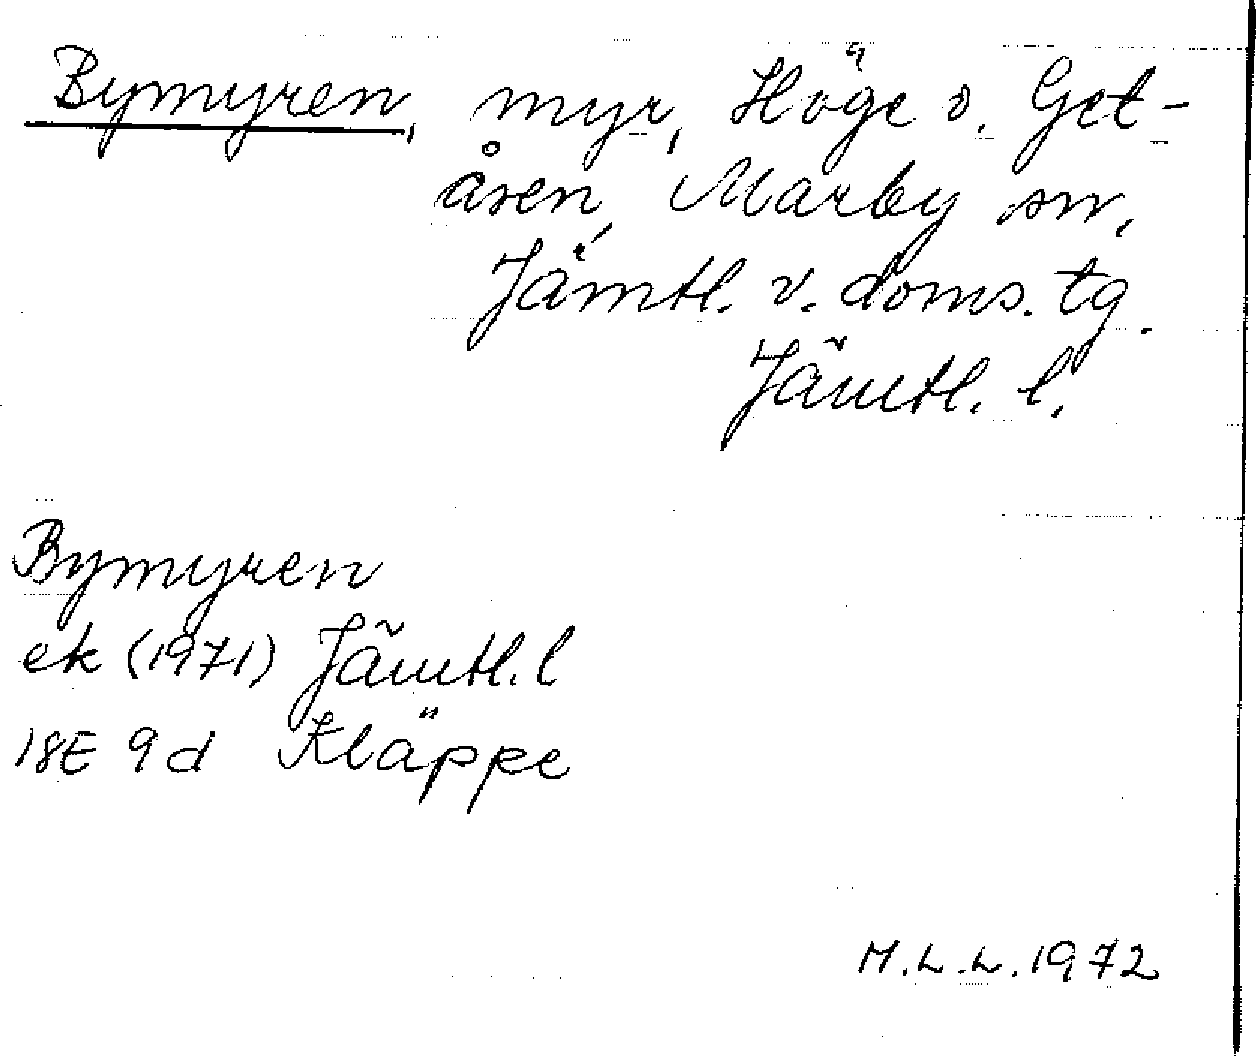 Bymyren, myr, Höge o. Get-
åsen, Marby sn,
Jämtl. v. doms. tg.
Jämtl. l.
Bymyren
ek (1971) Jämtl. l
18E 9d Kläppe
M.L.L. 1972